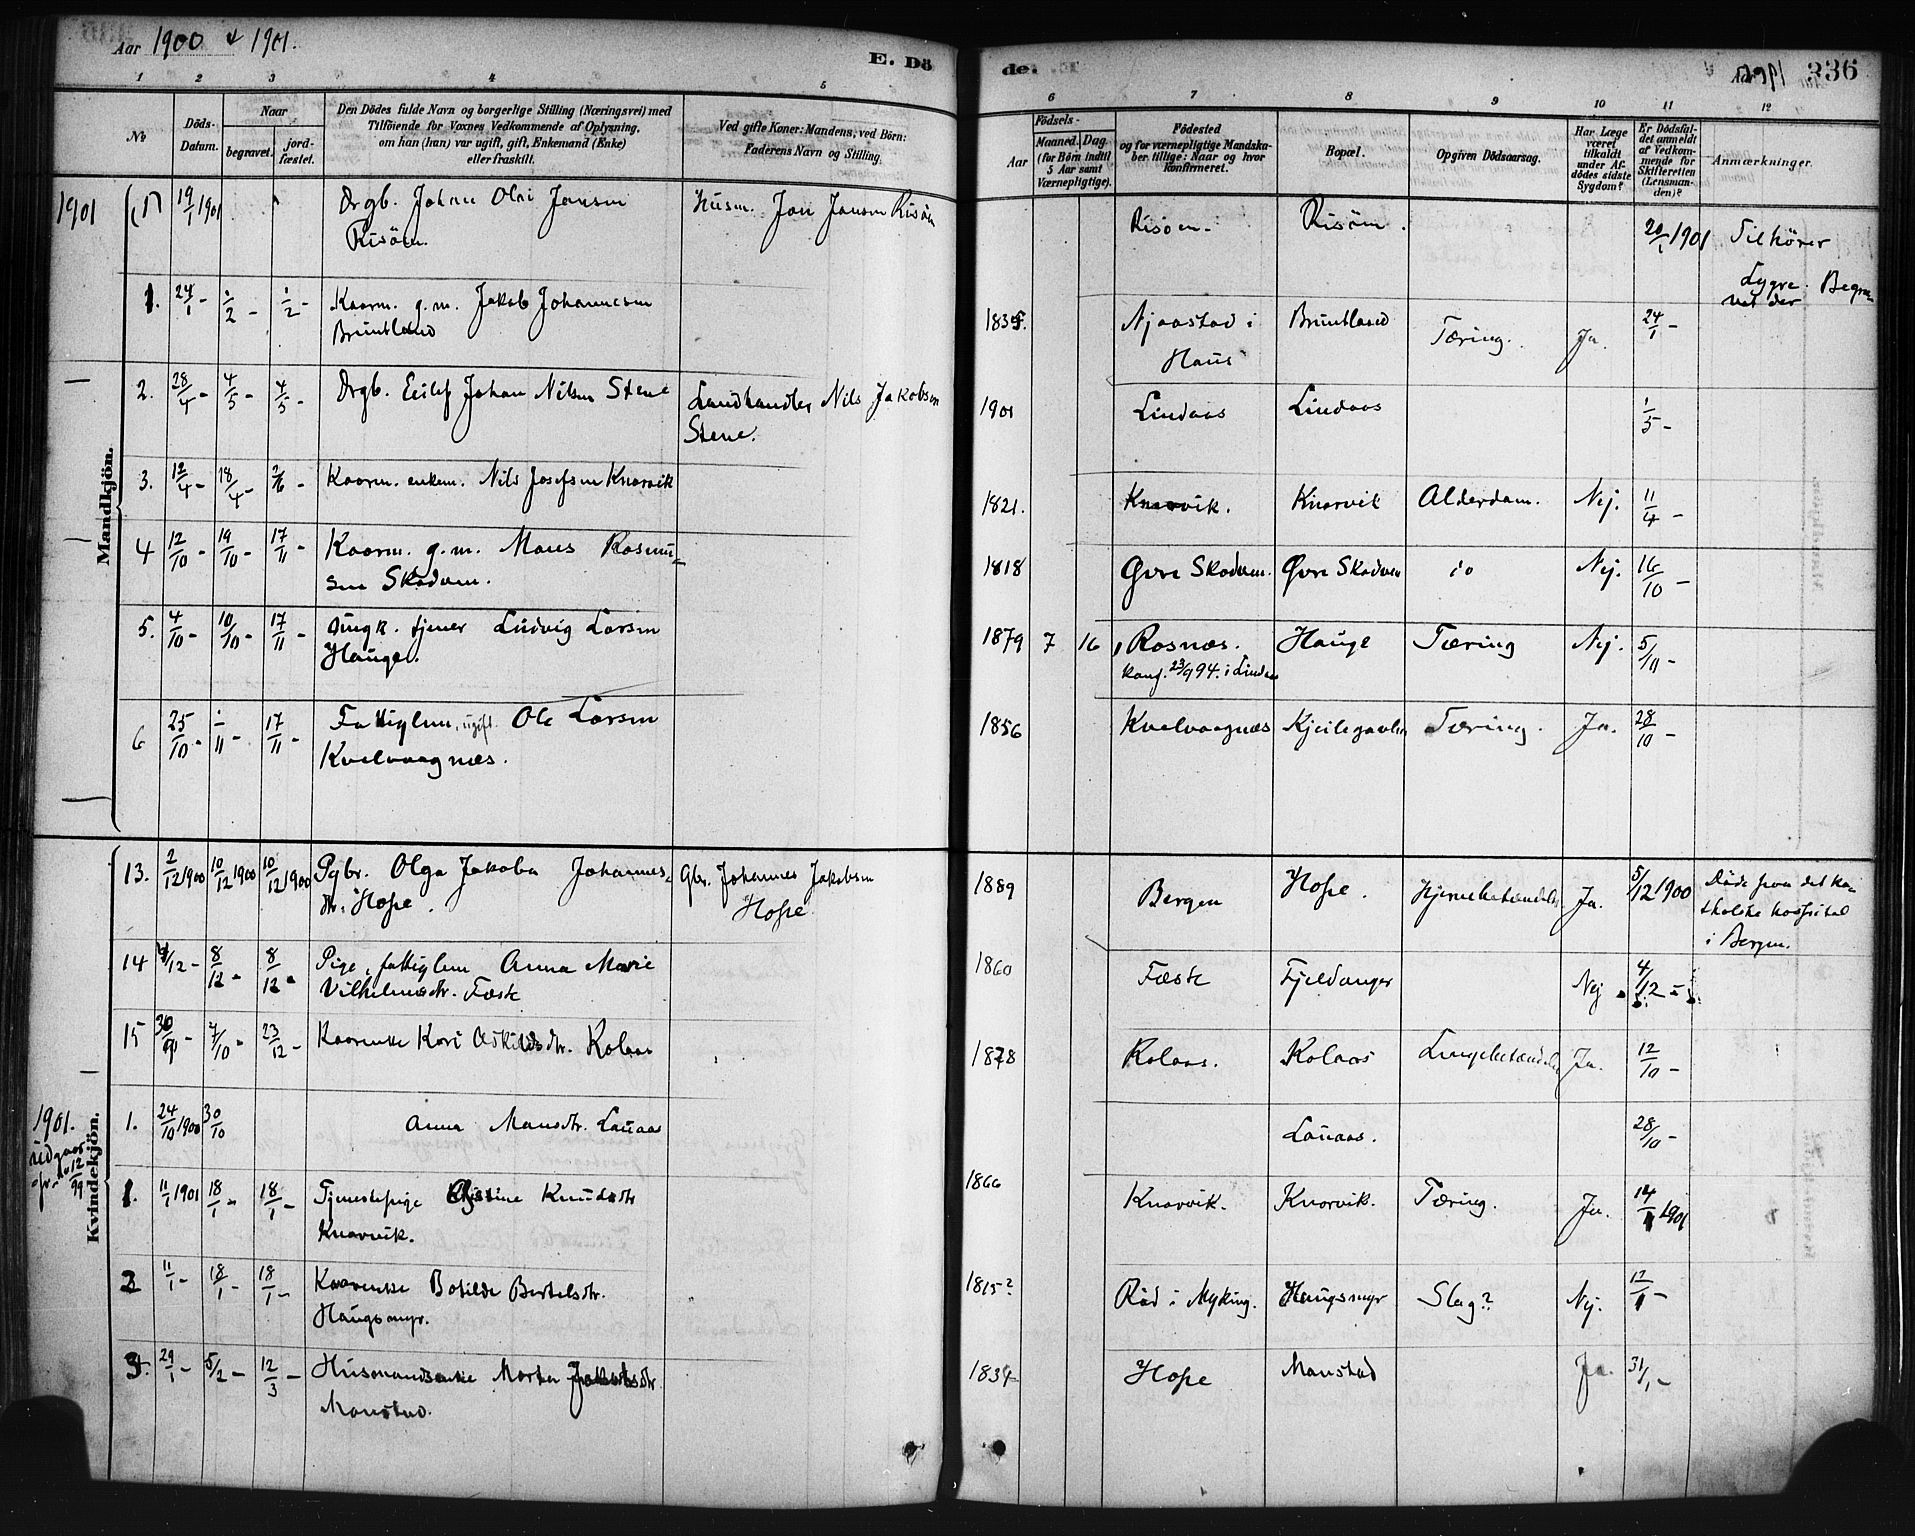 Aar 1900 & 1901.
E. Dö
de.
336
1 2 3 4 5 6 7 8 9 10 11 12
No
Döds-
Datum.
Naar
begravet.
jord-
fæstet.
Den Dödes fulde Navn og borgerlige Stilling (Næringsvei) med
Tilföiende for Voxnes Vedkommende af Oplysning,
om han (han) var ugift, gift, Enkemand (Enke)
eller fraskilt.
Ved gifte Koner: Mandens, ved Börn:
Faderens Navn og Stilling.
Födsels-
Aar
Maaned. Dag
(for Börn indtil
5 Aar samt
Værnepligtige).
Födested
og for værnepligtige Mandska-
ber tillige: Naar og hvor
konfirmeret.
Bopæl.
Opgiven Dödsaarsag.
Har Læge
været
tilkaldt
under Af-
dödes sidste
Sygdom?
Er Dödsfal-
det anmeldt
af Vedkom-
mende for
Skifteretten
(Lensman-
den)?
Anmærkninger.
Mandkjön.
1901 19/1 1901 Drgb. Johan Olai Jansen Husm. Jan Jansen Risöen Risöen. Risöen. 20/1 1901 Tilhörer
Risöen.
Lygre. Begra-
vet der
1. 24/1 - 1/2 - 1/2 - Kaarm. g.m. Jakob Johannesen 1835. Njaastad i Bruntland Tæring. Ja. 24/1 -
Bruntland Haus
2. 28/4 - 4/5 - 4/5 - Drgb. Eilef Johan Nilsen Stene Landhandler Nils Jakobsen 1901 Lindaas Lindaas 1/5 -
Stene.
3. 12/4 - 18/4 - 2/6 - Kaarm. enkem. Nils Josefsen Knarvik 1821. Knarvik. Knarvik Alderdom. Nej. 11/4 -
4 12/10 - 19/10 - 17/11 - Kaarm. g.m. Mons Rasmu- 1818 Øvre Skodven. Øvre Skodven do Nej. 16/10 -
sen Skodven.
5. 4/10 - 10/10 - 17/11 - Ungk. tjener Ludvig Larsen 1879 7 16 Rosnæs. Hauge Tæring Nej. 5/10 -
Hauge. konf. 23/9 94. i Lindaas
6 25/10 - 1/11 - 17/11 - Fattiglem, ugift Ole Larsen 1856 Kvalvaagnæs Kjeilegavlen Tæring. Ja. 28/10 -
Kvalvaagnæs.
Kvindekjön.
13. 2/12 1900 10/12 1900 10/12 1900 Pgbr. Olga Jakoba Johannes- Gbr. Johannes Jakobsen 1889 Bergen Hope. Hjernebetændelse Ja. 5/12 1900 Döde paa det ka-
dtr. Hope. Hope. tholske hospital
i Bergen.
14 4/12 - 8/12 - 8/12 - Pige, fattiglem Anna Marie 1860 Fæste Fjeldanger Nej 4/12 -
Vilhelmsdtr. Fæste
15 30/9 - 7/10 - 23/12 - Kaarenke Kari Askildsdtr. Kolaas 1828 Kolaas. Kolaas Lungebetændelse Ja. 12/10 -
1901.
udgaar
1. 24/10 1900 30/10 Anna Monsdtr. Lauaas Lauaas. 28/10 -
12/99
1. 11/1 1901 18/1 - 18/1 - Tjenestepige Kristine Knudsdtr 1866 Knarvik. Knarvik. Tæring. Ja. 14/1 1901
Knarvik.
2 11/1 - 18/1 - 18/1 - Kaarenke Botilde Bertelsdtr. 1815? Röd i Myking. Haugsmyr Slag? Nej. 12/1 -
Haugsmyr.
3. 29/1 - 5/2 - 12/3 - Husmandsenke Marta Jakobsdtr 1834 Hope Monstad Ja. 31/1 -
Monstad.